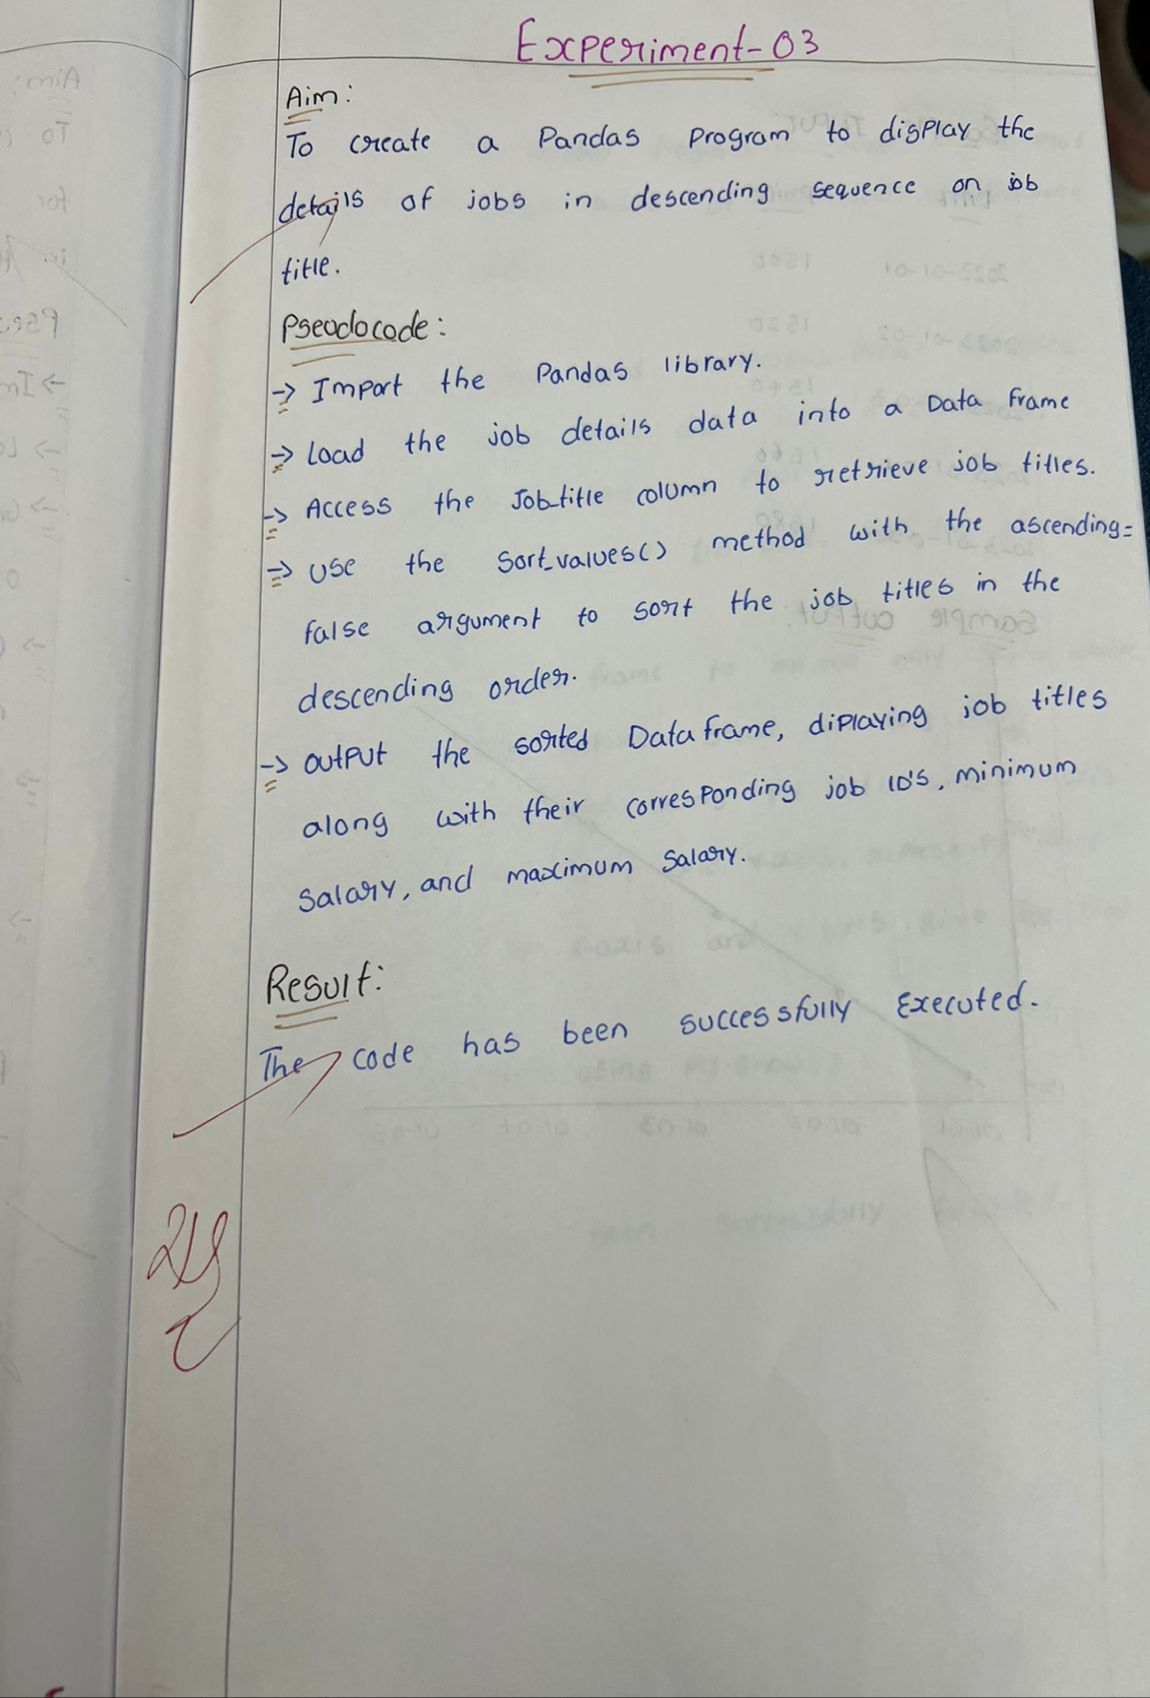 Experiment-03
Aim:
To create a Pandas Program to display the
details of jobs in descending sequence on job
title.
Pseodocode:
-> Import the Pandas library.
-> Load the job details data into a Data Frame
-> Access the Job-title column to retrieve job titles.
-> Use the Sort_values() method with the ascending=
false argument to sort the job titles in the
descending order.
-> output the sorted Data frame, diplaying job titles
along with their corresponding job ID's, minimum
salary, and maximum salary.
Result:
The code has been successfully Executed.